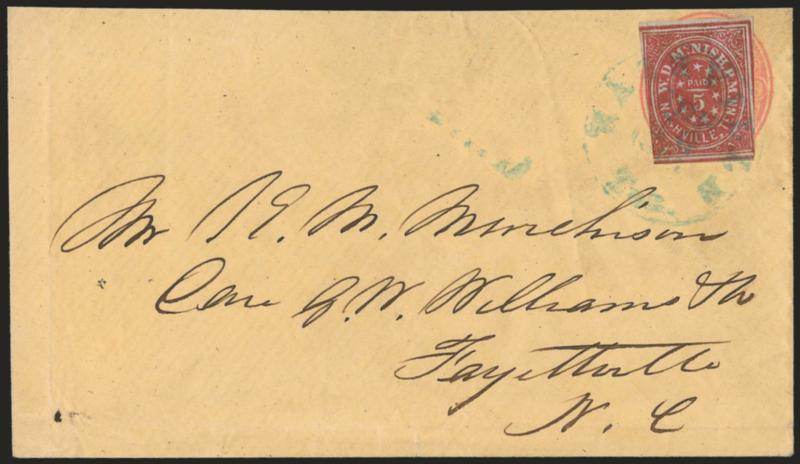 W. D. McNISH. P.M.
PAID
5
NASHVILLE, TENN.
Mr K. M. Murchison
Care J. W. Williams & Co
Fayetteville
N. C